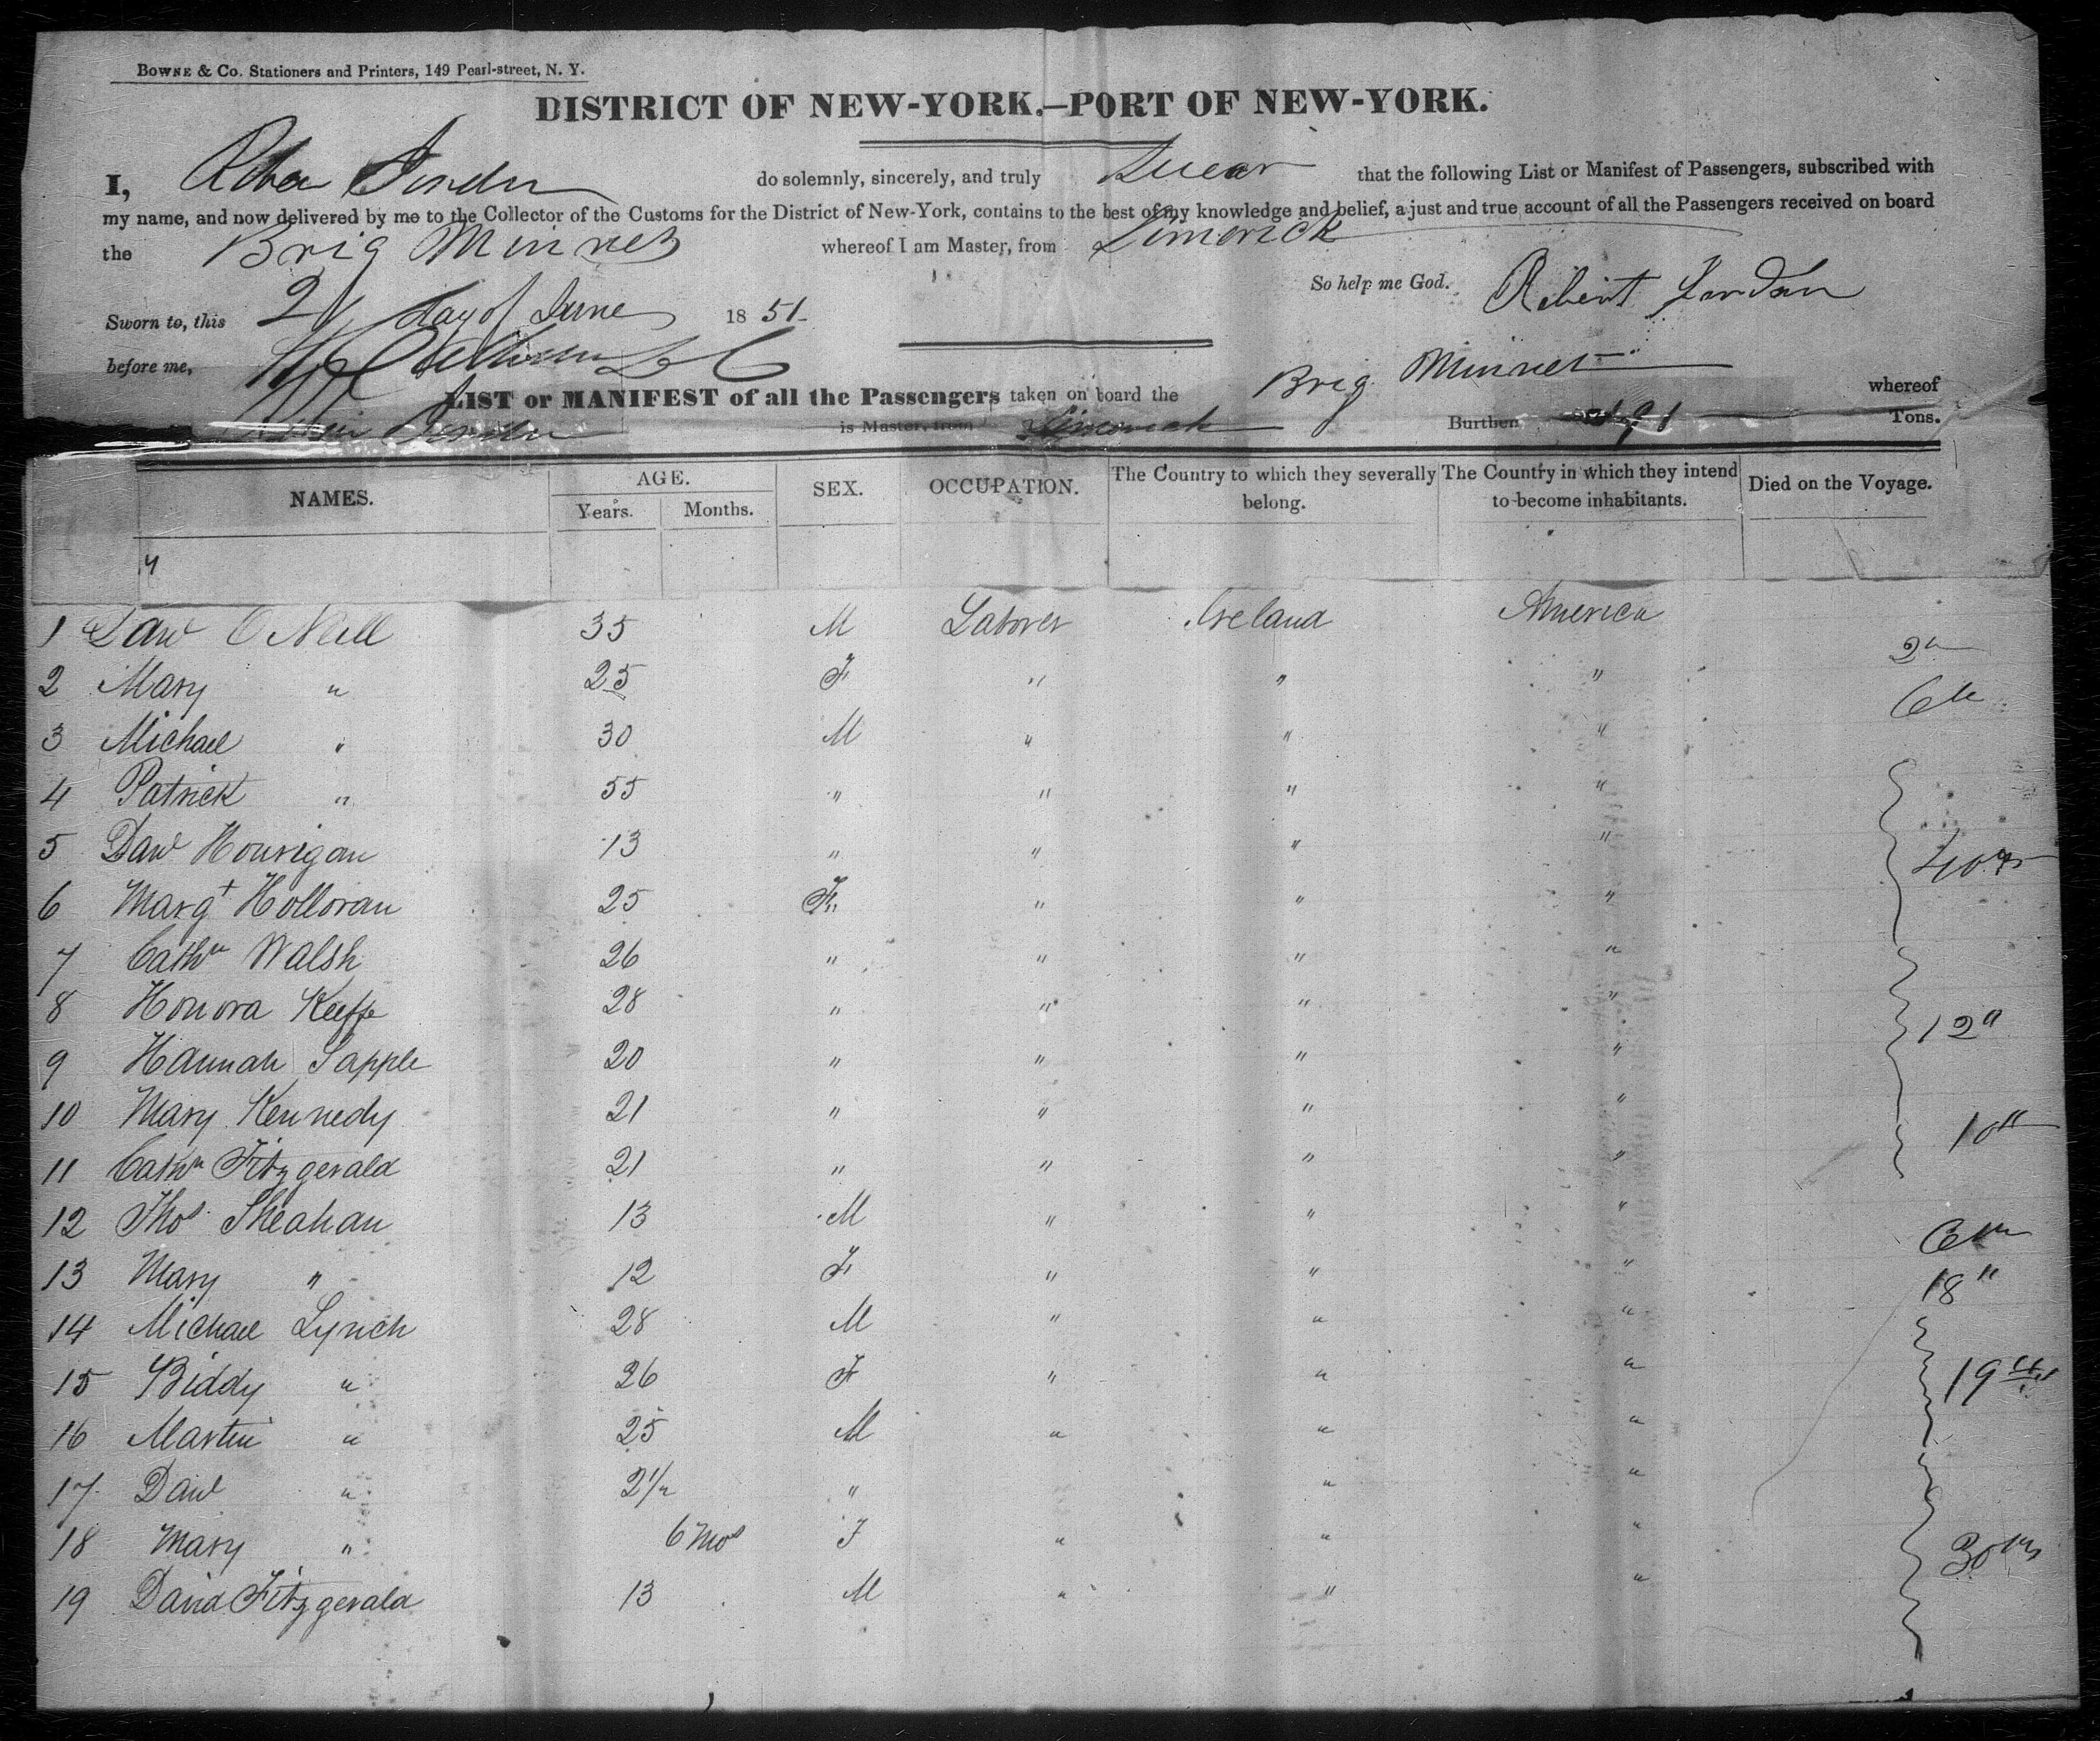 BOWNE & CO. Stationers and Printers, 149 Pearl-street, N. Y.
DISTRICT OF NEW-YORK.—PORT OF NEW-YORK.
I, do solemnly, sincerely, and truly Swear that the following List or Manifest of Passengers, subscribed with
my name, and now delivered by me to the Collector of the Customs for the District of New-York, contains to the best of my knowledge and belief, a just and true account of all the Passengers received on board
the Brig Minnet whereof I am Master, from Limerick
So help me God. Robert Jordan
Sworn to, this day of June 1851
before me,
LIST or MANIFEST of all the Passengers taken on board the Brig Minnet whereof
is Master, from Limerick Burthen Tons.
NAMES. AGE. Years. Months. SEX. OCCUPATION. The Country to which they severally belong. The Country in which they intend to become inhabitants. Died on the Voyage.
1 O Neill 35 M Laborer Ireland America
2 Mary " 25 F " " "
3 Michael " 30 M " " "
4 Patrick " 55 " " " "
5 Hourigan 13 " " " "
6 Margt Holloran 25 F " " "
7 Cathn Walsh 26 " " " "
8 Honora Keeffe 28 " " " "
9 Hannah Sapple 20 " " " "
10 Mary Kennedy 21 " " " "
11 Cathn Fitzgerald 21 " " " "
12 Thos Sheahan 13 M " " "
13 Mary " 12 F " " "
14 Michael Lynch 28 M " " "
15 Biddy " 26 F " " "
16 Martin " 25 M " " "
17 " 2½ " " "
18 Mary " 6 Mos F " " "
19 David Fitzgerald 13 M " " "